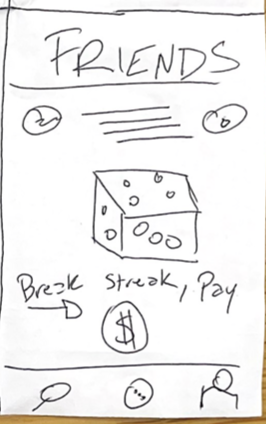 FRIENDS
Break Streak, Pay
$